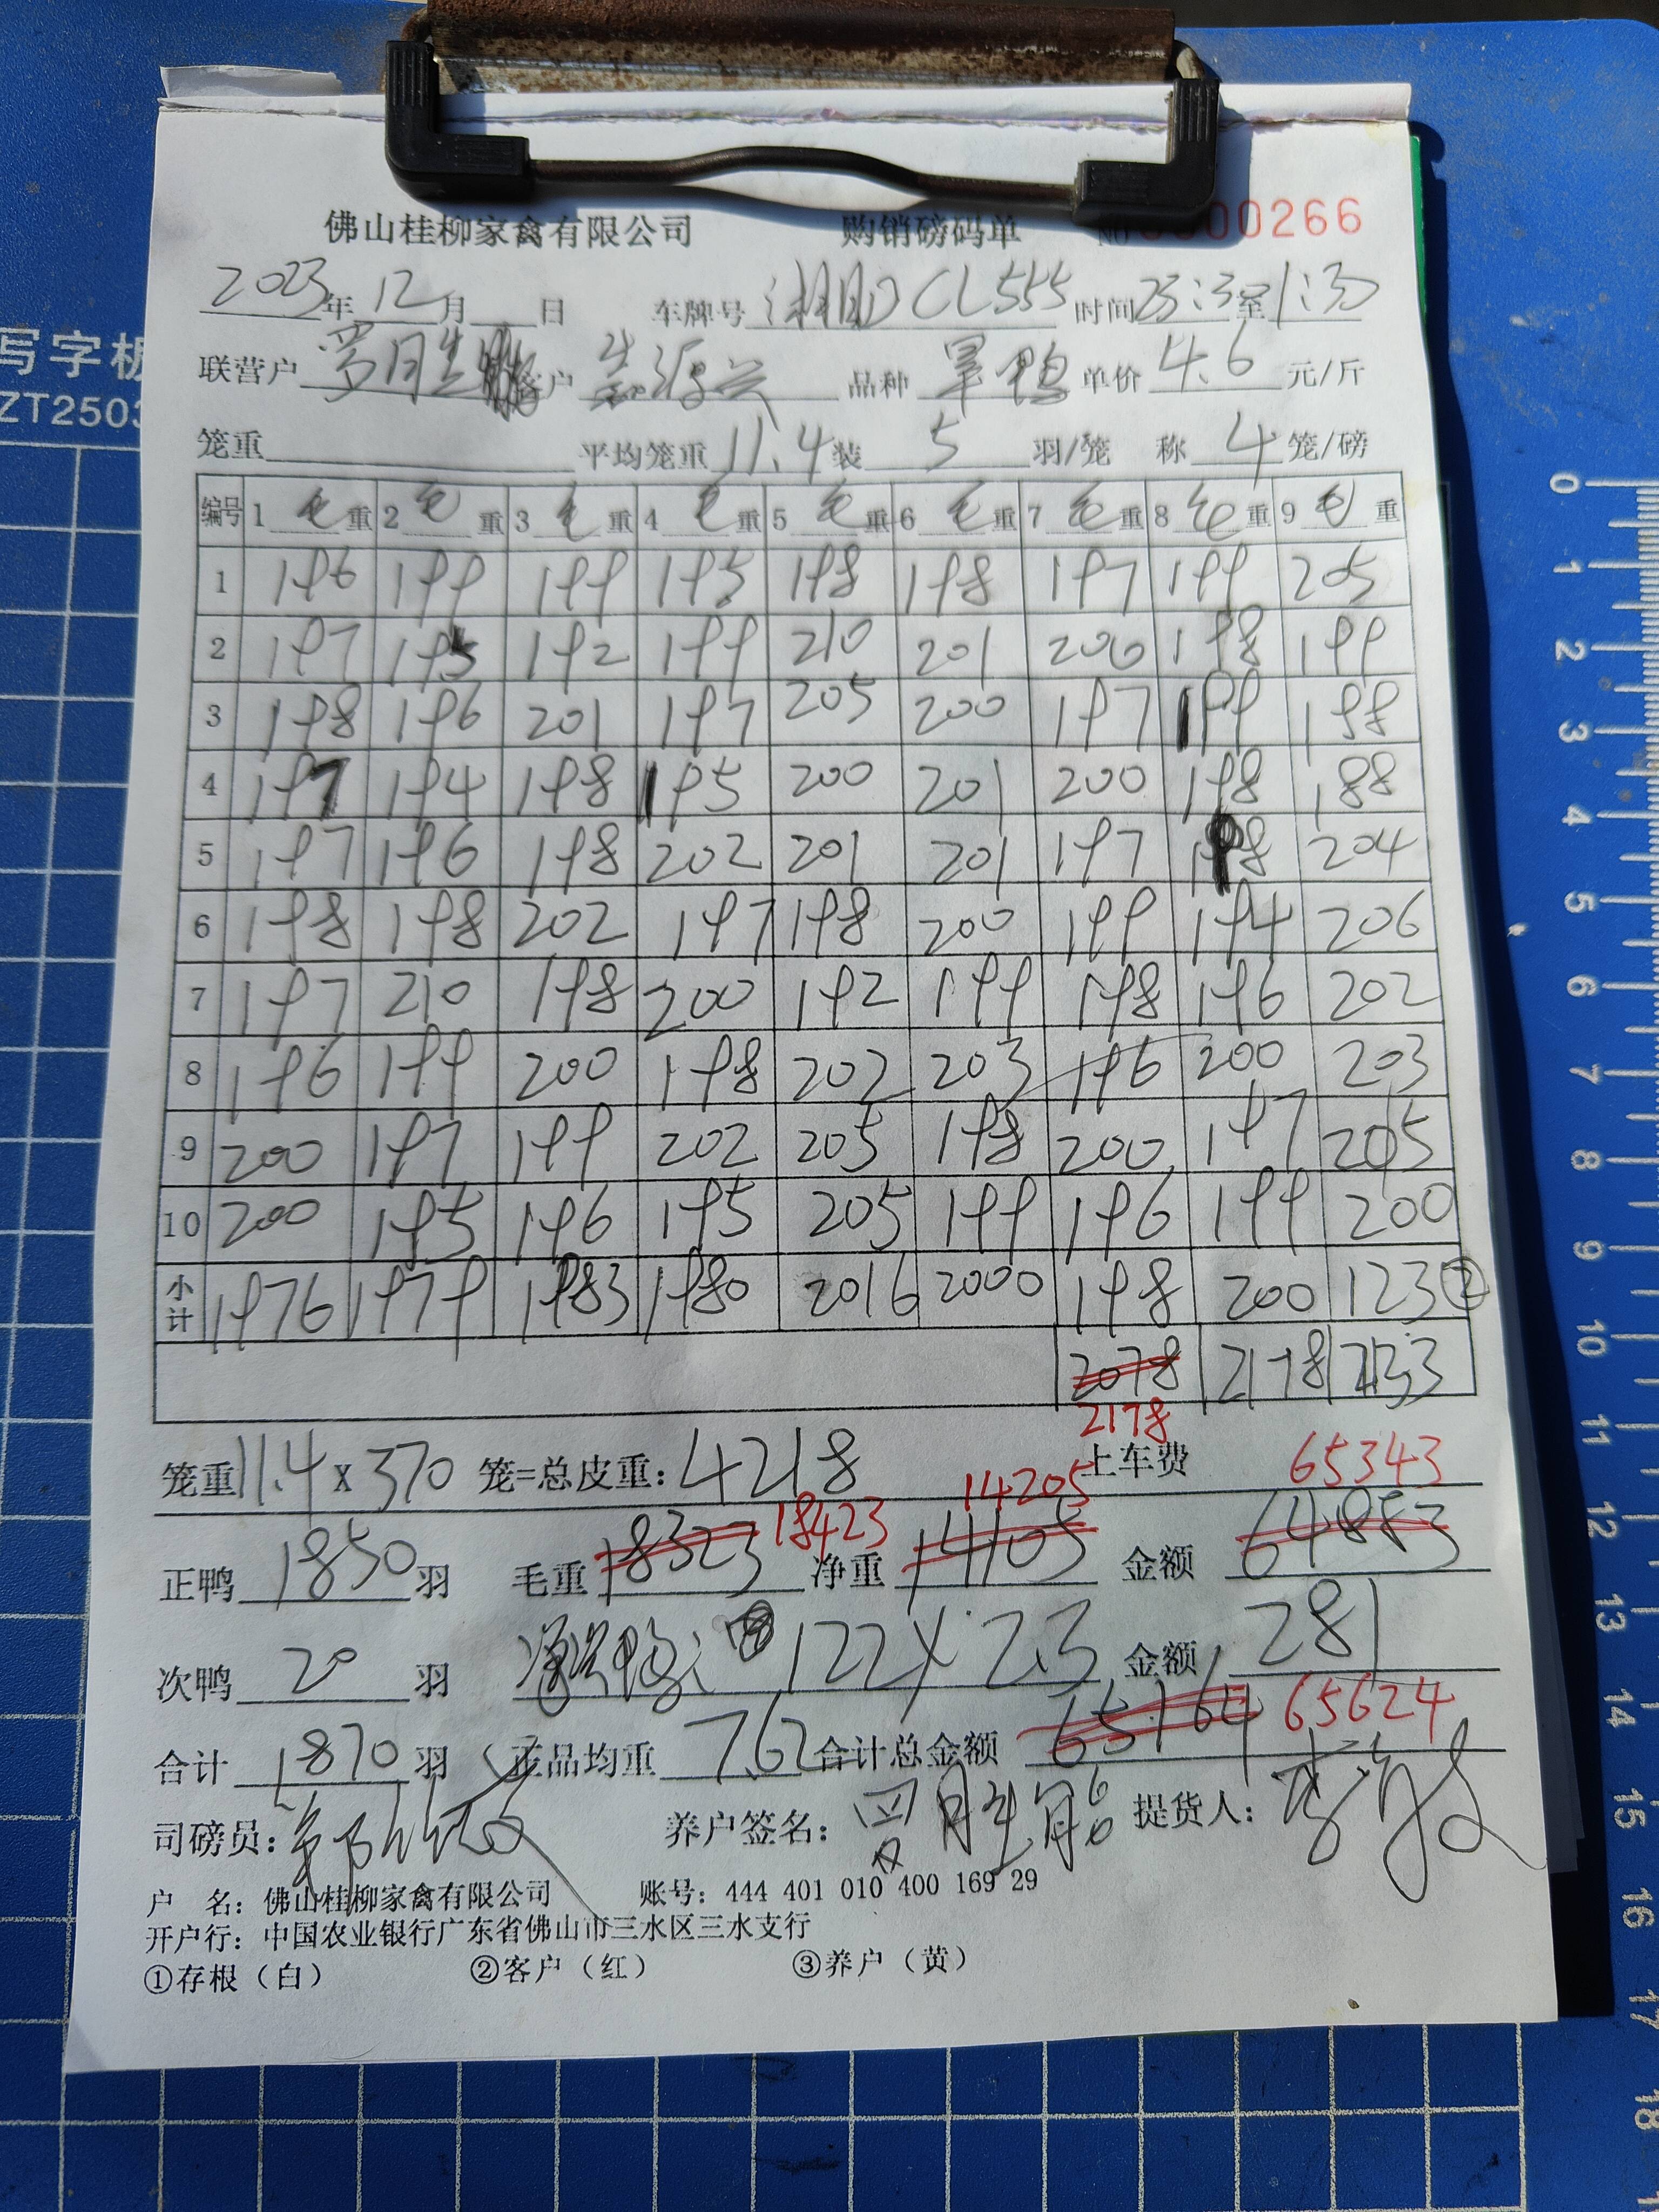 佛山桂柳家禽有限公司 购销磅码单 NO 0000266
2023年12月 日 车牌号 湘DCL555 时间23:30至1:30
联营户 客户 品种 单价 4.6 元/斤
笼重 平均笼重 11.4 装 5 羽/笼 称 4 笼/磅
编号 1 毛 重 2 毛 重 3 毛 重 4 毛 重 5 毛 重 6 毛 重 7 毛 重 8 毛 重 9 毛 重
1 196 199 199 195 198 198 197 199 205
2 197 195 192 199 210 201 200 198 199
3 198 196 201 197 205 200 197 199 198
4 197 194 198 195 200 201 200 198 188
5 197 196 198 202 201 201 197 198 204
6 198 198 202 197 198 200 199 194 206
7 197 210 198 200 192 199 198 196 202
8 196 199 200 198 202 203 196 200 203
9 200 197 199 202 205 198 200 197 205
10 200 195 196 195 205 199 196 199 200
小计 1976 1979 1983 1980 2016 2000 198 200 123 ②
2078 2178 2133
2178
笼重11.4 x 370 笼=总皮重: 4218 上车费 65343
正鸭 1850 羽 毛重 18323 18423 净重 14105 14205 金额 64883
次鸭 20 羽 122 X 2.3 金额 281
合计 1870 羽 正品均重 7.62 合计总金额 65164 65624
司磅员: 养户签名: 提货人:
户 名: 佛山桂柳家禽有限公司 账号: 444 401 010 400 169 29
开户行: 中国农业银行广东省佛山市三水区三水支行
①存根（白） ②客户（红） ③养户（黄）
写字板
ZT2503
0
1
2
3
4
5
6
7
8
9
10
11
12
13
14
15
16
17
18